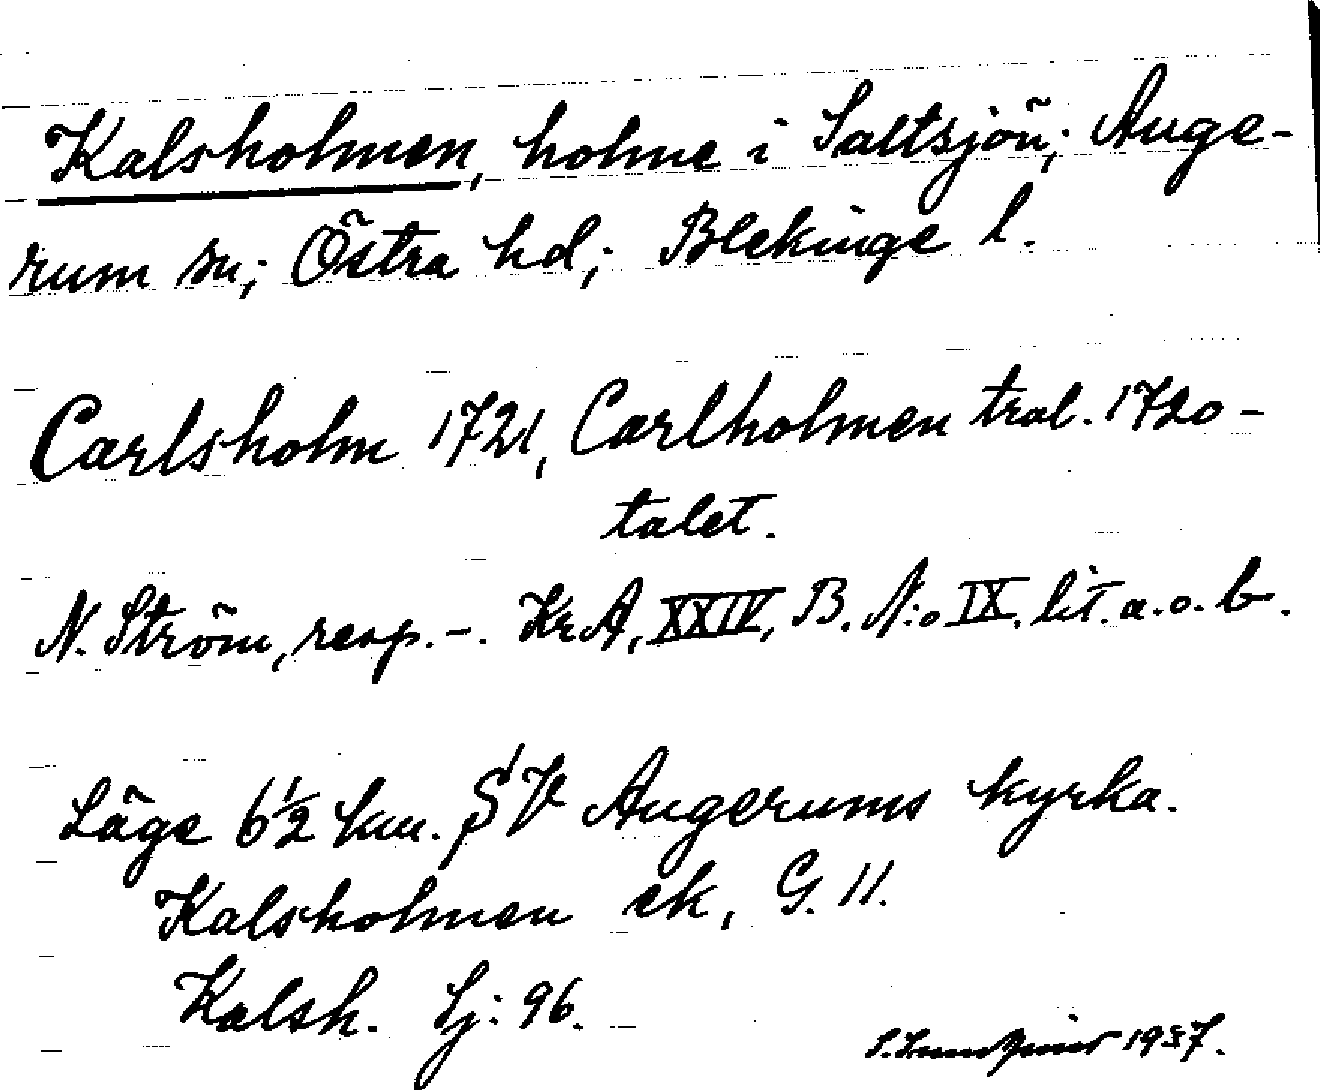 Kalsholmen, holme i Saltsjön; Auge-
rum sn; Östra hd; Blekinge l.
Carlsholm 1721, Carlholmen tral. 1720-
talet.
N. Ström, resp. -. Kr.A, XXIV, B. N:o IX, lit. a. o. b.
Läge 6½ km. SV Augerums kyrka.
Kalsholmen ek, G. 11.
Kalsh. Sj: 96.
1937.